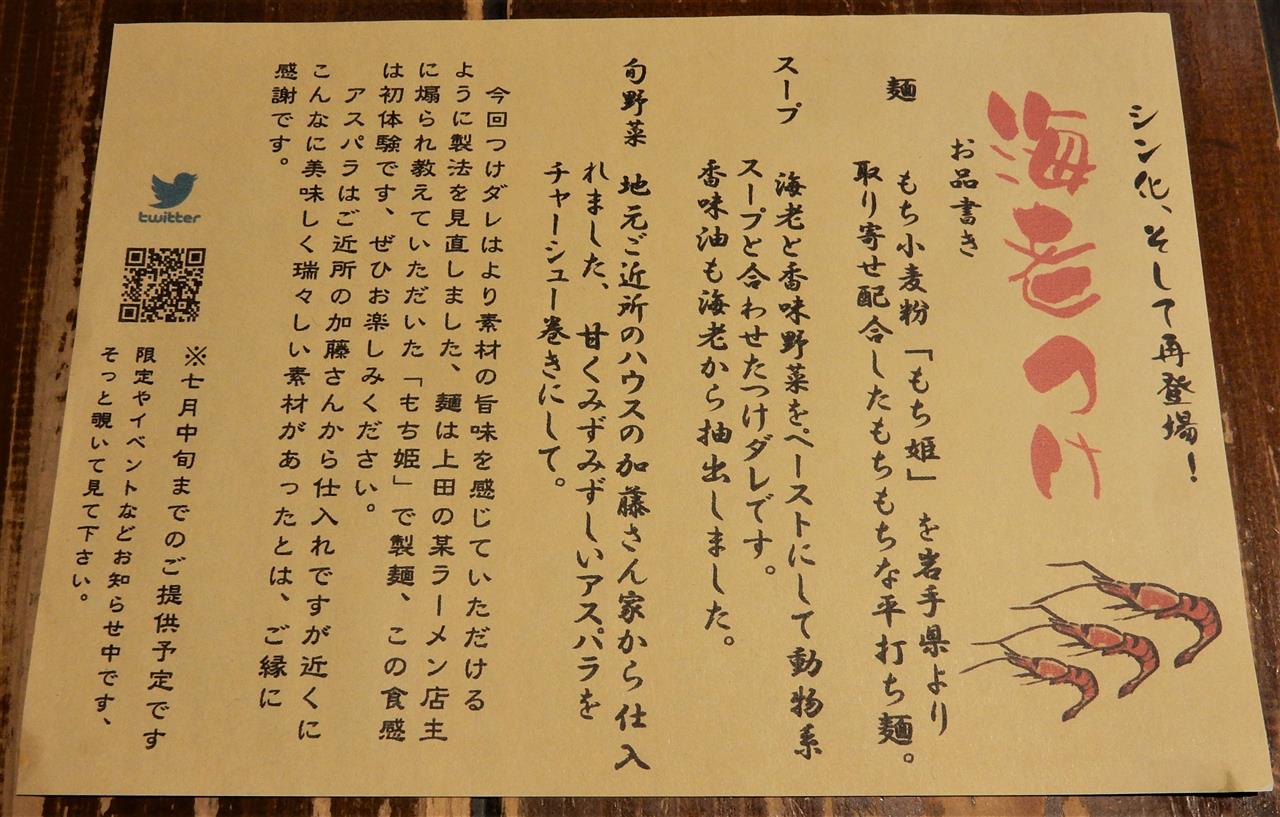 シン化、そして再登場！
海老つけ
お品書き
麺
もち小麦粉「もち姫」を岩手県より
取り寄せ配合したもちもちな平打ち麺。
スープ
海老と香味野菜をペーストにして動物系
スープと合わせたつけダレです。
香味油も海老から抽出しました。
旬野菜
地元ご近所のハウスの加藤さん家から仕入
れました、甘くみずみずしいアスパラを
チャーシュー巻きにして。
今回つけダレはより素材の旨味を感じていただける
ように製法を見直しました、麺は上田の某ラーメン店主
に煽られ教えていただいた「もち姫」で製麺、この食感
は初体験です、ぜひお楽しみください。
アスパラはご近所の加藤さんから仕入れですが近くに
こんなに美味しく瑞々しい素材があったとは、ご縁に
感謝です。
twitter
※七月中旬までのご提供予定です
限定やイベントなどお知らせ中です、
そっと覗いて見て下さい。